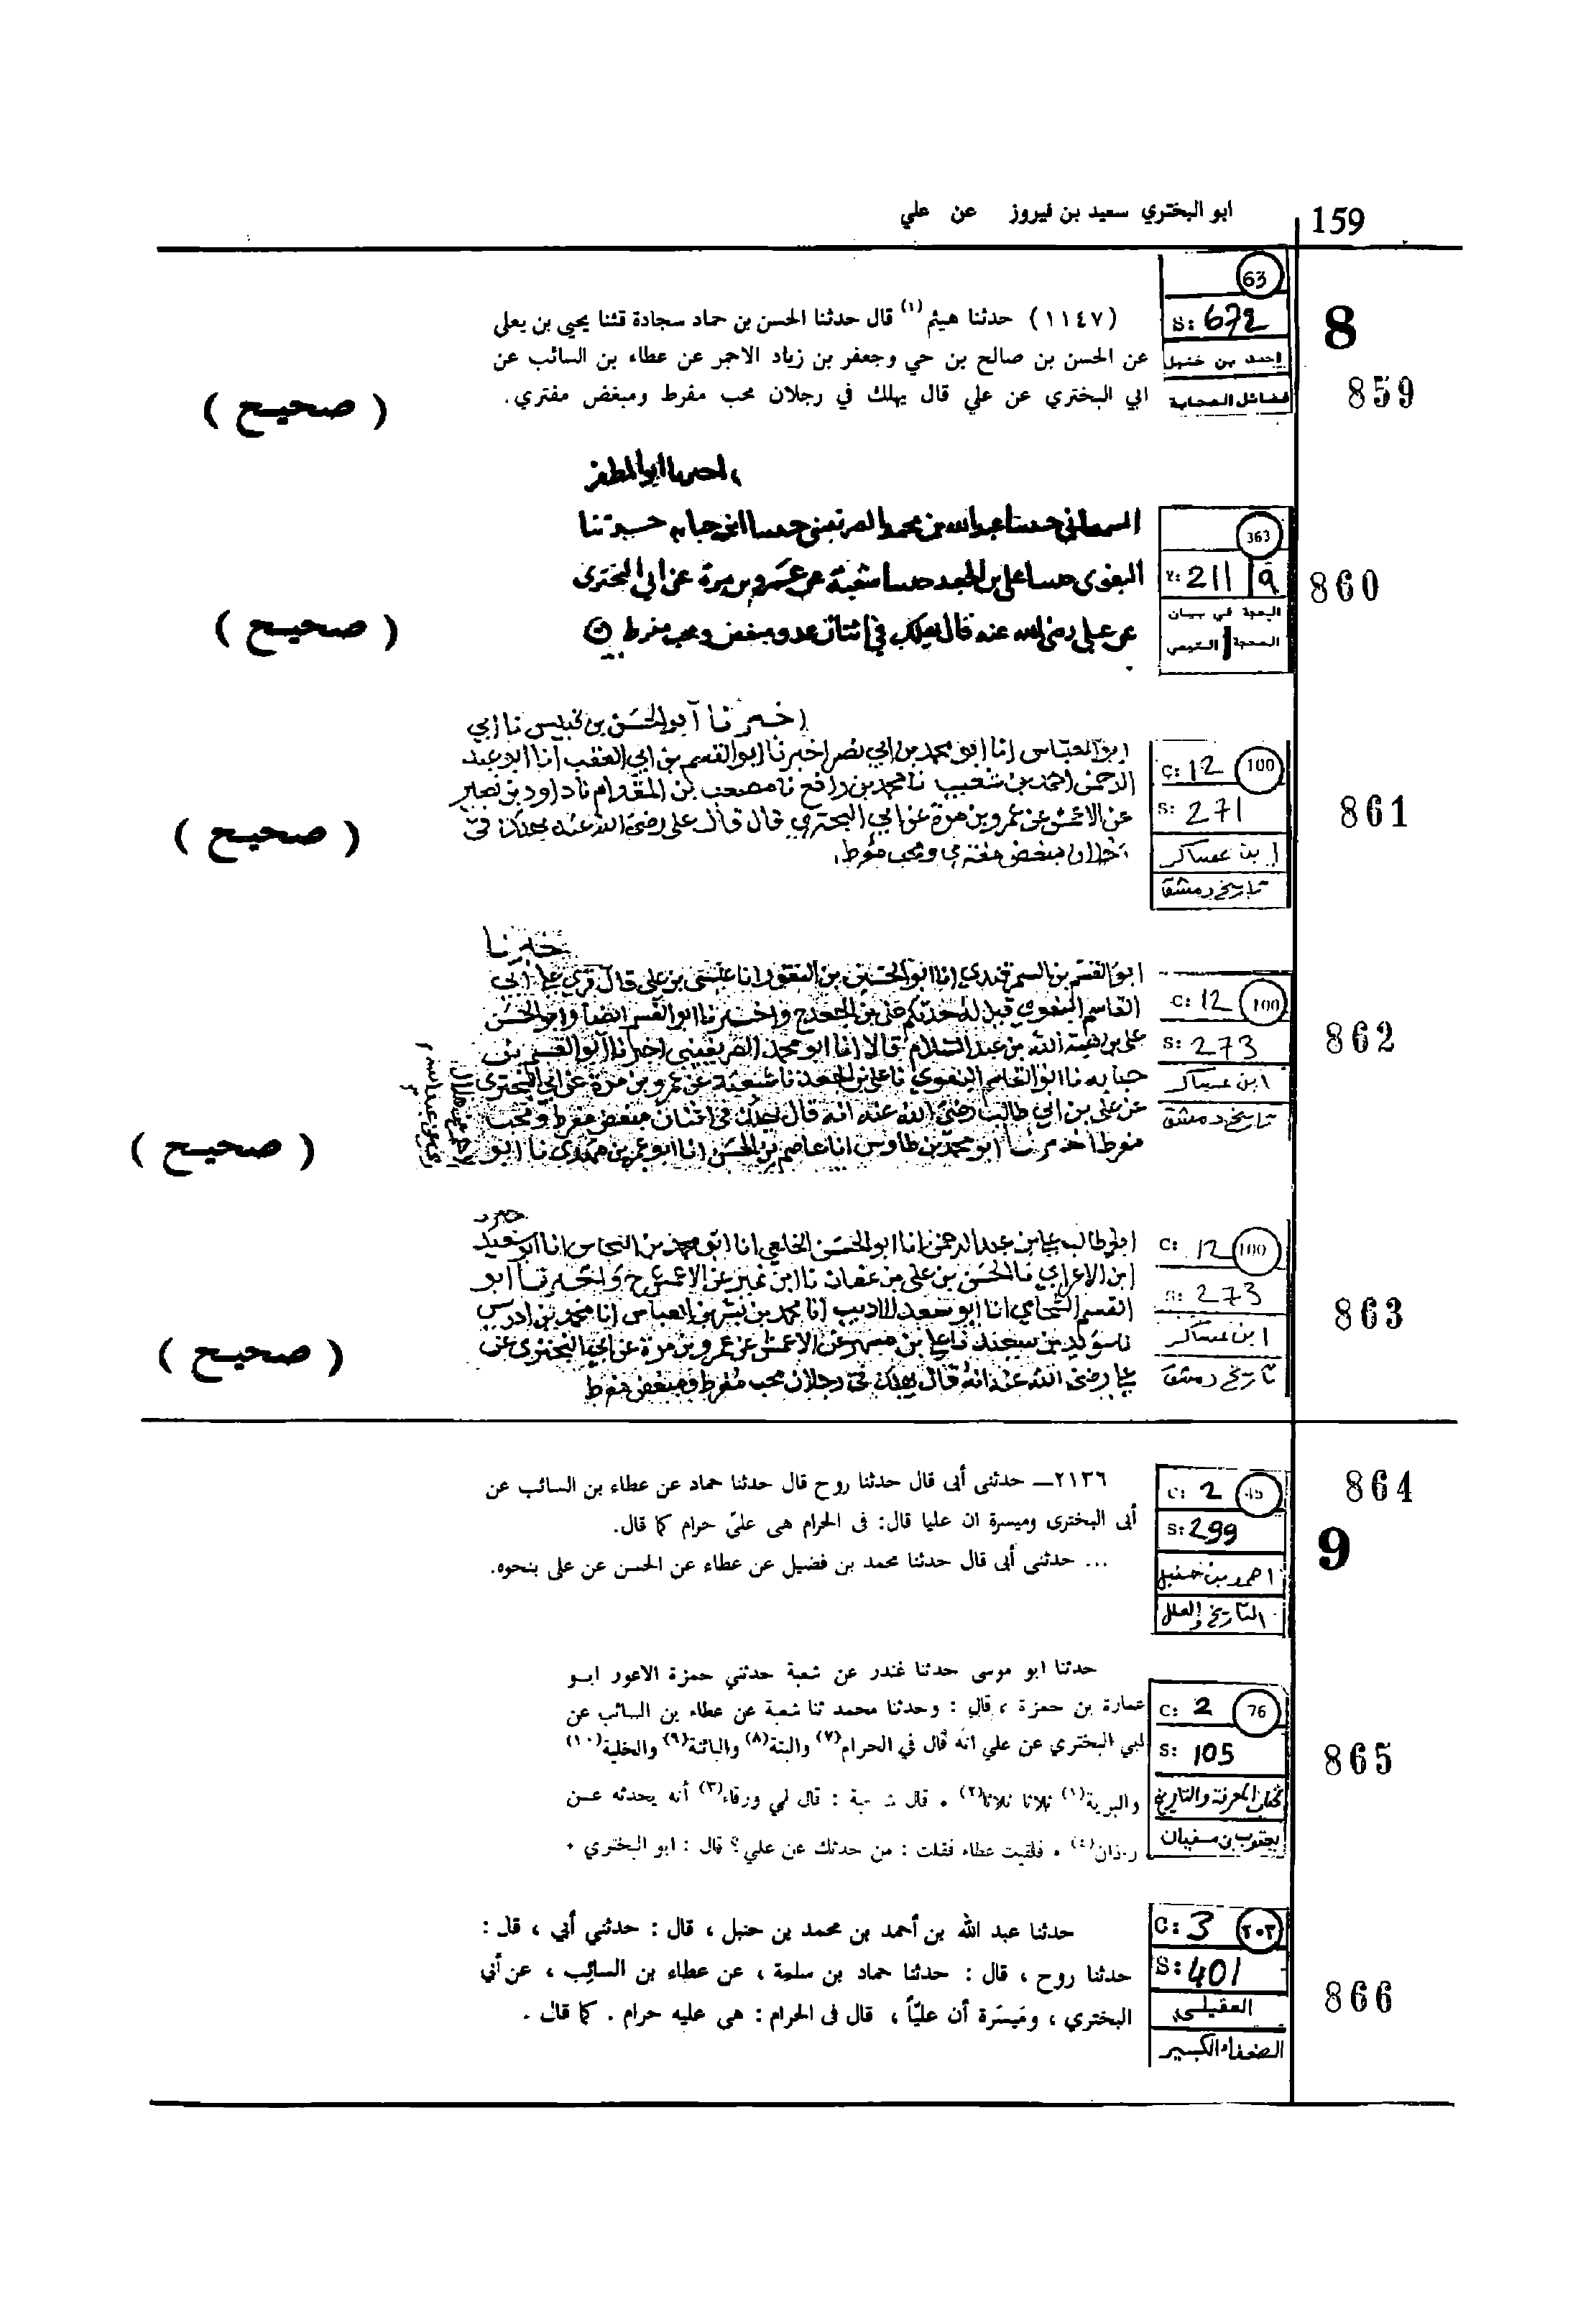 159
ابو البختري سعيد بن فيروز عن علي
8
63
S: 672
احمد بن حنبل
فضائل الصحابة
859
(١١٤٧) حدثنا هيثم (١) قال حدثنا الحسن بن حماد سجادة قثنا يحيى بن يعلى
عن الحسن بن صالح بن حي وجعفر بن زياد الاحمر عن عطاء بن السائب عن
ابي البختري عن علي قال يهلك في رجلان محب مفرط ومبغض مفتري.
( صحيح )
860
363
211 9
الحجة في بيان
المحجة التيمي
ابو المظفر
السمعاني حدثنا عبد الله بن محمد الصريفيني حدثنا ابن حبابه حدثنا
البغوى حدثنا على بن الجعد حدثنا شعبة عن عمرو بن مرة عن ابي البخترى
عن على رضى الله عنه قال يهلك في اثنان عدو مبغض ومحب مفرط
( صحيح )
861
C: 12 100
S: 271
ابن عساكر
تاريخ دمشق
اخبرنا ابو الحسن بن قبيس نا ابي
ابو العباس انا ابو محمد بن ابي نصر اخبرنا ابو القسم بن ابي العقب انا ابو عبد
الرحمن احمد بن شعيب نا محمد بن رافع نا مصعب بن المقدام نا داود بن نصير
عن الاعمش عن عمرو بن مرة عن ابي البختري قال قال على رضى الله عنه يهلك في
رجلان مبغض مفتري ومحب مفرط.
( صحيح )
862
C: 12 100
S: 273
ابن عساكر
تاريخ دمشق
اخبرنا
ابو القسم بن السمرقندي انا ابو الحسين بن النقور انا عيسى بن على قال قرى على ابي
القاسم البغوي قيل له حدثكم على بن الجعد ح واخبرنا ابو القسم ايضا وابو الحسن
على بن هبة الله بن عبد السلام قالا انا ابو محمد الصريفيني اخبرنا ابو القسم بن
حبابه نا ابو القاسم البغوي نا على بن الجعد نا شعبة عن عمرو بن مرة عن ابي البخترى
عن على بن ابي طالب رضى الله عنه انه قال يهلك في اثنان مبغض مفرط ومحب
مفرط اخبرنا ابو محمد بن طاوس انا عاصم بن الحسن انا ابو عمر بن مهدي نا ابو
( صحيح )
863
C: 12 100
S: 273
ابن عساكر
تاريخ دمشق
ابو طالب على بن عبد الرحمن انا ابو الحسن الخلعي انا ابو محمد بن النحاس انا ابو سعيد
ابن الاعرابي نا الحسن بن على بن عفان نا ابن نمير عن الاعمش ح واخبرنا ابو
القسم الشحامي انا ابو سعد الاديب انا محمد بن بشر بن العباس انا محمد بن ادريس
نا سويد بن سعيد نا على بن مسهر عن الاعمش عن عمرو بن مرة عن ابي البخترى عن
على رضى الله عنه انه قال يهلك في رجلان محب مفرط ومبغض مفرط
( صحيح )
864
9
C: 2
S: 299
احمد بن حنبل
التاريخ والعلل
٢١٣٦ــ حدثنى أبى قال حدثنا روح قال حدثنا حماد عن عطاء بن السائب عن
أبى البخترى وميسرة ان عليا قال: فى الحرام هى علىّ حرام كما قال.
... حدثنى أبى قال حدثنا محمد بن فضيل عن عطاء عن الحسن عن على بنحوه.
865
C: 2 76
S: 105
كتاب المعرفة والتاريخ
يعقوب بن سفيان
حدثنا ابو موسى حدثنا غندر عن شعبة حدثني حمزة الاعور ابـو
عمارة بن حمزة ، قال : وحدثنا محمد ثنا شعبة عن عطاء بن السائب عن
ابي البختري عن علي انه قال في الحرام (٧) والبتة (٨) والبائنة (٩) والخلية (١٠)
والبرية (١) ثلاثا ثلاثا (٢) . قال شعبة : قال لي ورقاء (٣) أنه يحدثه عـن
زاذان (٤) . فلقيت عطاء فقلت : من حدثك عن علي؟ قال : ابو البختري .
866
C: 3 ٢٠٣
S: 401
العقيلي
الضعفاء الكبير
حدثنا عبد الله بن أحمد بن محمد بن حنبل ، قال : حدثني أبي ، قال :
حدثنا روح ، قال : حدثنا حماد بن سلمة ، عن عطاء بن السائب ، عن أبي
البختري ، وميسرة أن عليّاً ، قال فى الحرام : هى عليه حرام . كما قال .